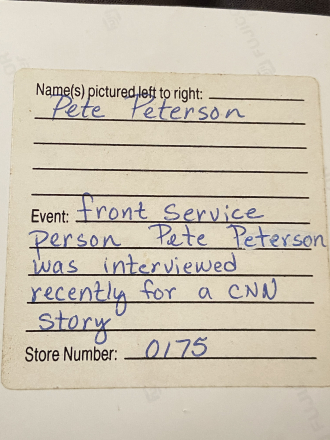 Name(s) pictured left to right:
Pete Peterson
Event: front service
person Pete Peterson
was interviewed
recently for a CNN
story
Store Number: 0175